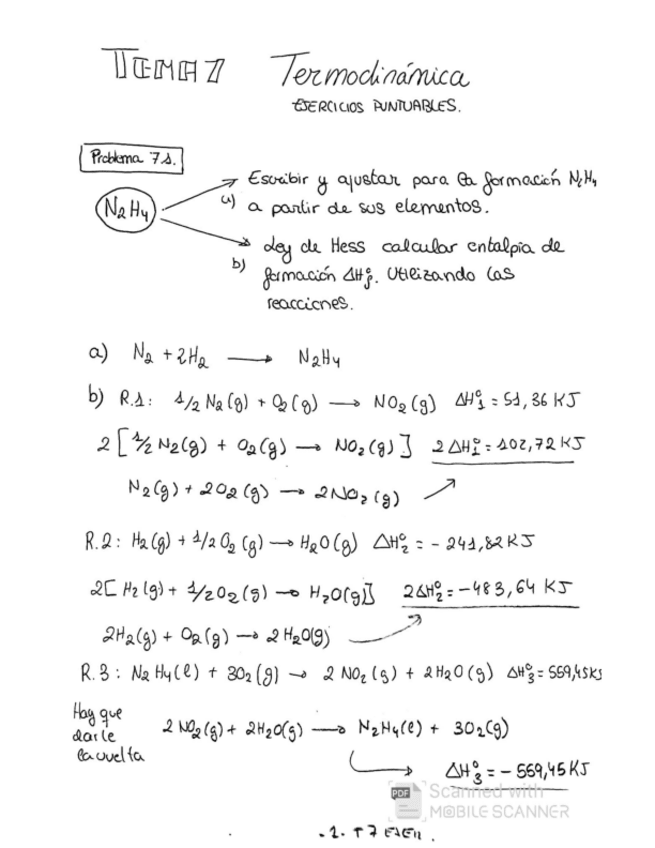 TEMA 7 Termodinámica
EJERCICIOS PUNTUABLES.
Problema 7.1.
N2H4
a) Escribir y ajustar para la formación N2H4
a partir de sus elementos.
b) Ley de Hess calcular entalpía de
formación ΔHf°. Utilizando las
reacciones.
a) N2 + 2H2 → N2H4
b) R.1: 1/2 N2(g) + O2(g) → NO2(g) ΔH°1 = 51,36 KJ
2[1/2 N2(g) + O2(g) → NO2(g)] 2ΔH°1 = 102,72 KJ
N2(g) + 2O2(g) → 2NO2(g)
R.2: H2(g) + 1/2O2(g) → H2O(g) ΔH°2 = - 241,82KJ
2[H2(g) + 1/2O2(g) → H2O(g)] 2ΔH°2 = -483,64 KJ
2H2(g) + O2(g) → 2H2O(g)
R.3: N2H4(l) + 3O2(g) → 2NO2(g) + 2H2O(g) ΔH°3 = 559,45KJ
Hay que
darle
la vuelta
2NO2(g) + 2H2O(g) → N2H4(l) + 3O2(g)
ΔH°3 = - 559,45KJ
PDF Scanned with
MOBILE SCANNER
.1. T7